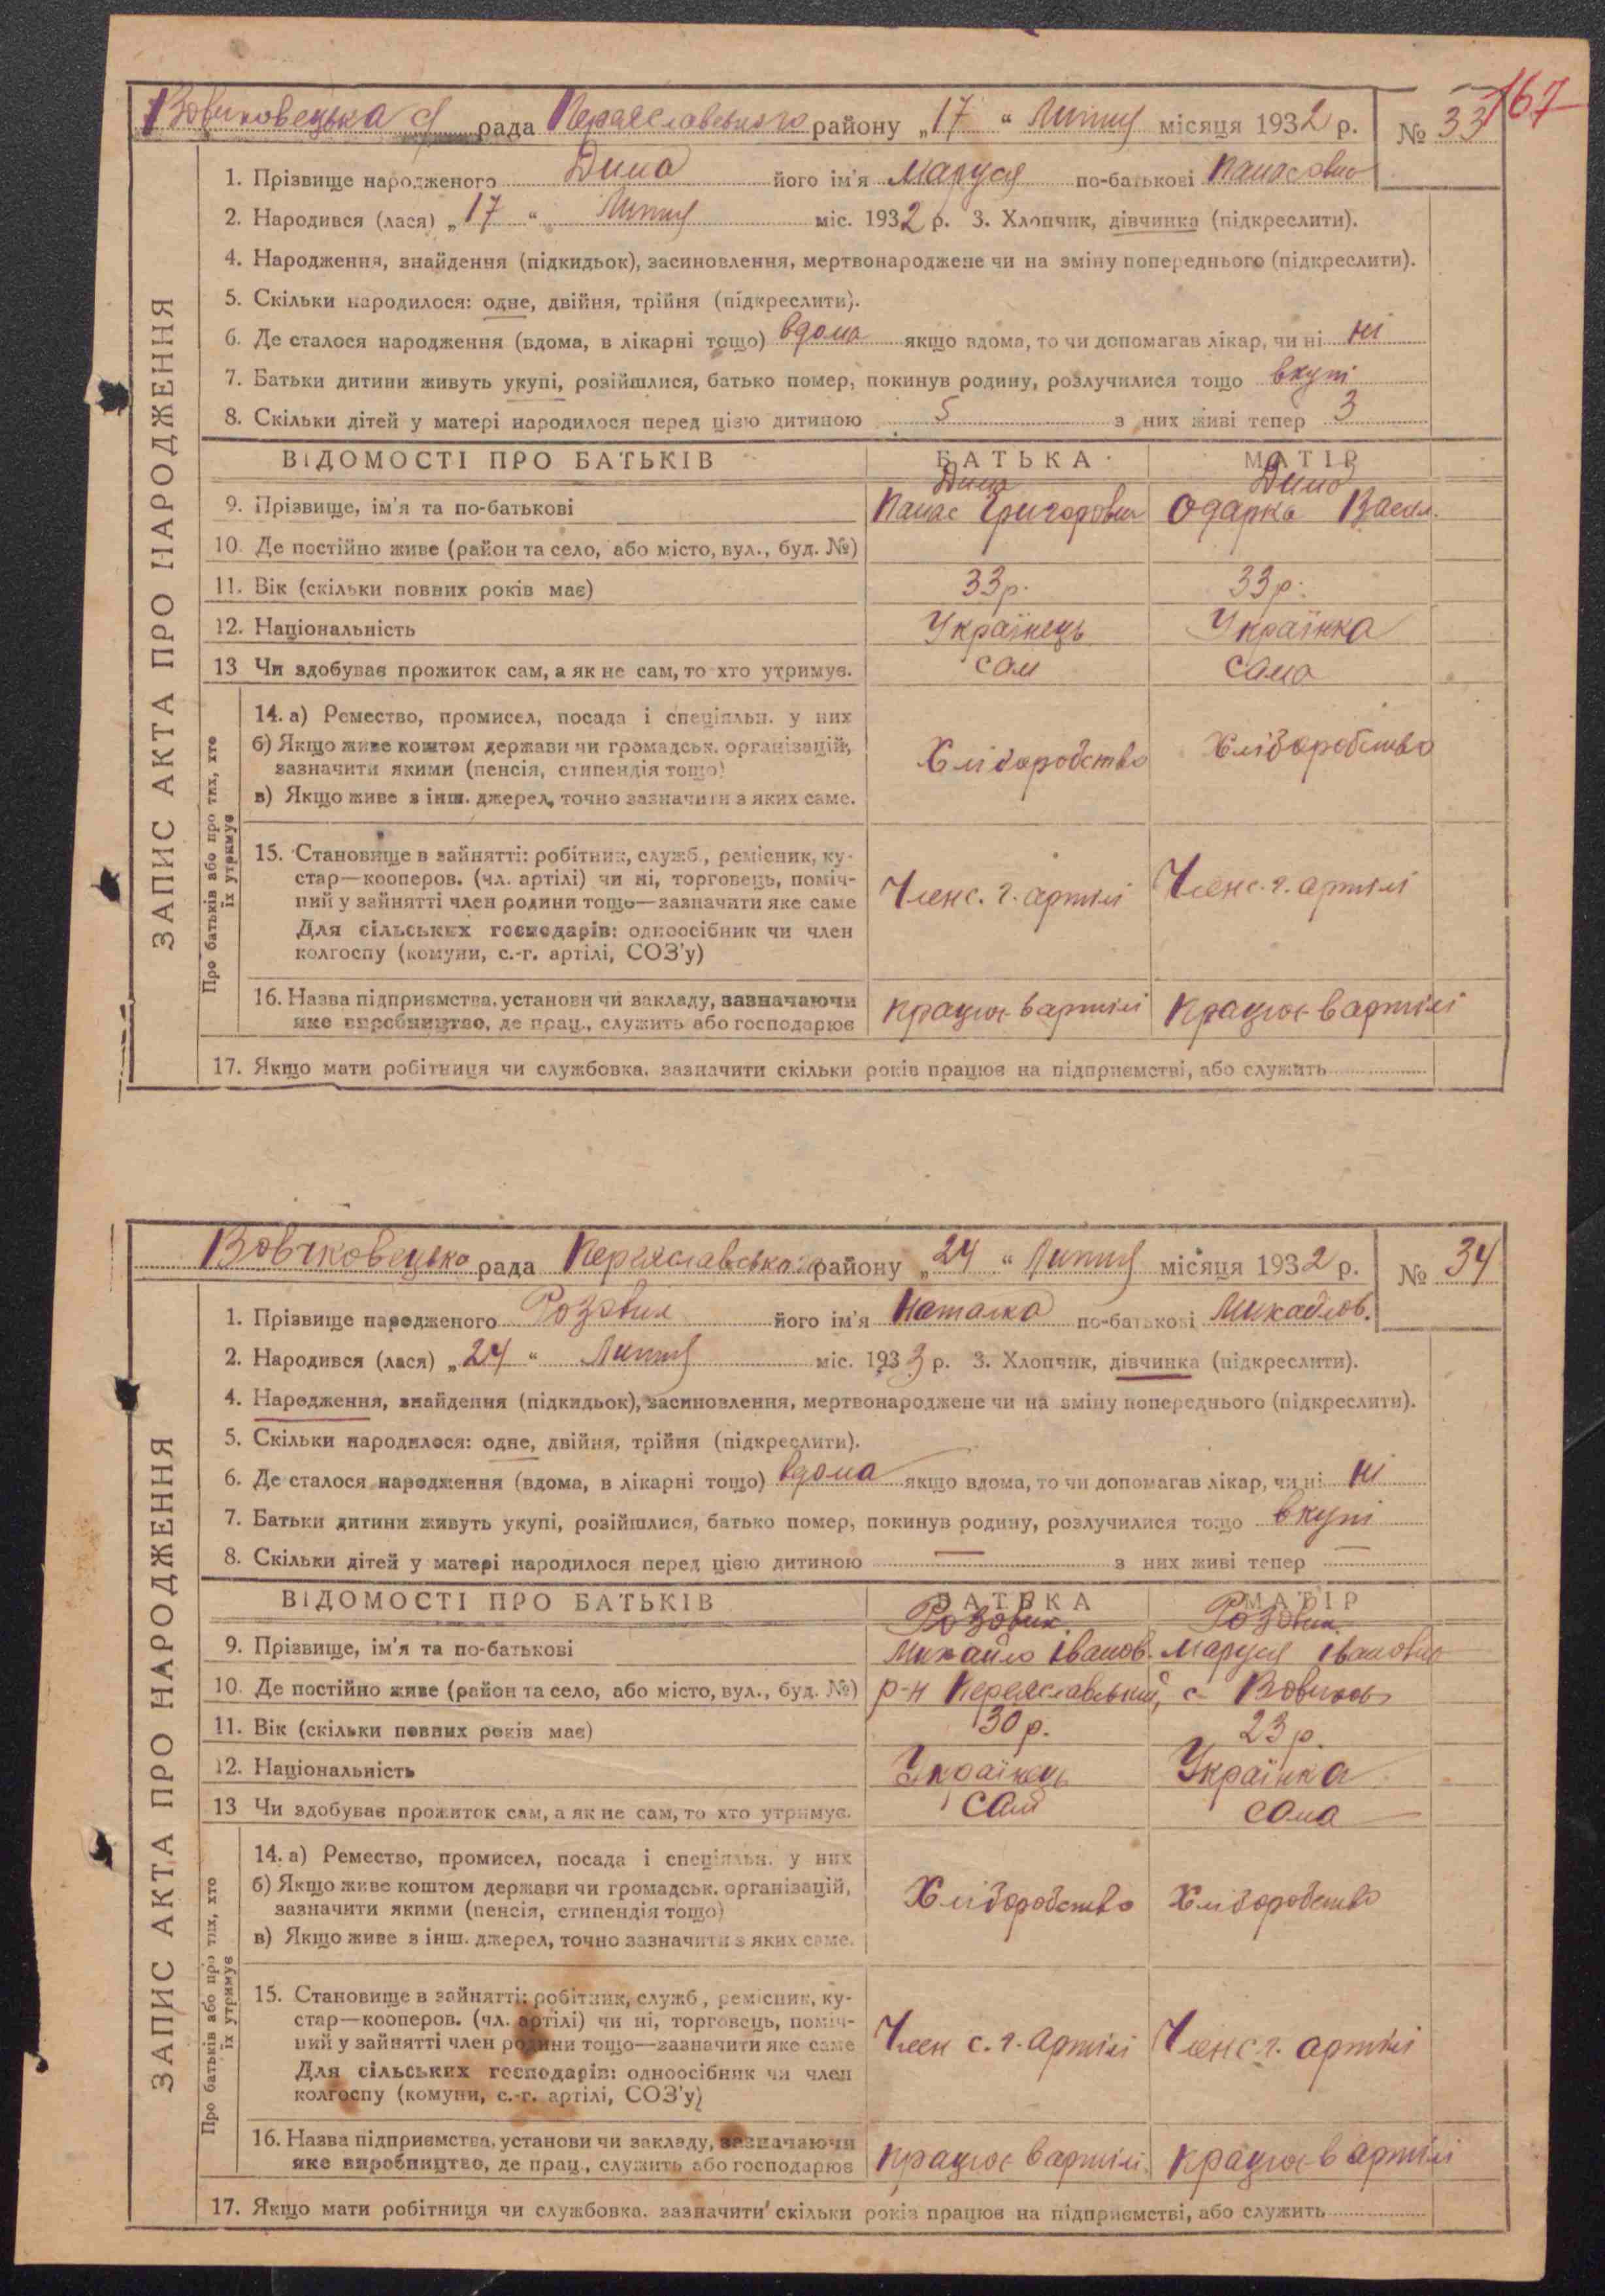 167
Вовчковецька с рада Переяславського району „17“ Липня місяця 1932 р. № 33
1. Прізвище народженого Дима його ім'я Маруся по-батькові Панасовна
2. Народився (лася) „17“ Липня міс. 1932 р. 3. Хлопчик, дівчинка (підкреслити).
4. Народження, знайдення (підкидьок), засиновлення, мертвонароджене чи на зміну попереднього (підкреслити).
5. Скільки народилося: одне, двійня, трійня (підкреслити).
6. Де сталося народження (вдома, в лікарні тощо) вдома якщо вдома, то чи допомагав лікар, чи ні ні
7. Батьки дитини живуть укупі, розійшлися, батько помер, покинув родину, розлучилися тощо вкупі
8. Скільки дітей у матері народилося перед цією дитиною 5 з них живі тепер 3
ЗАПИС АКТА ПРО НАРОДЖЕННЯ
ВІДОМОСТІ ПРО БАТЬКІВ БАТЬКА МАТІР
Дима Дима
9. Прізвище, ім'я та по-батькові Панас Григорович Одарка Васил.
10. Де постійно живе (район та село, або місто, вул., буд. №)
11. Вік (скільки повних років має) 33 р. 33 р.
12. Національність Українець Українка
13 Чи здобуває прожиток сам, а як не сам, то хто утримує. сам сама
Про батьків або про тих, хто
їх утримує
14. а) Ремество, промисел, посада і спеціяльн. у них
б) Якщо живе коштом держави чи громадськ. організацій,
зазначити якими (пенсія, стипендія тощо)
Хліборобство Хліборобство
в) Якщо живе з інш. джерел, точно зазначити з яких саме.
15. Становище в зайнятті: робітник, служб., ремісник, ку-
стар—кооперов. (чл. артілі) чи ні, торговець, поміч-
ний у зайнятті член родини тощо—зазначити яке саме
Член с. г. артілі Член с. г. артілі
Для сільських господарів: одноосібник чи член
колгоспу (комуни, с.-г. артілі, СОЗ'у)
16. Назва підприємства, установи чи закладу, зазначаючи
яке виробництво, де прац., служить або господарює
працює в артілі працює в артілі
17. Якщо мати робітниця чи службовка, зазначити скільки років працює на підприємстві, або служить
Вовчковецька рада Переяславського району „24“ Липня місяця 1932 р. № 34
1. Прізвище народженого Розовик його ім'я Наталка по-батькові Михайлов.
2. Народився (лася) „24“ Липня міс. 1933 р. 3. Хлопчик, дівчинка (підкреслити).
4. Народження, знайдення (підкидьок), засиновлення, мертвонароджене чи на зміну попереднього (підкреслити).
5. Скільки народилося: одне, двійня, трійня (підкреслити).
6. Де сталося народження (вдома, в лікарні тощо) вдома якщо вдома, то чи допомагав лікар, чи ні ні
7. Батьки дитини живуть укупі, розійшлися, батько помер, покинув родину, розлучилися тощо вкупі
8. Скільки дітей у матері народилося перед цією дитиною — з них живі тепер —
ЗАПИС АКТА ПРО НАРОДЖЕННЯ
ВІДОМОСТІ ПРО БАТЬКІВ БАТЬКА МАТІР
Розовик. Розовик.
9. Прізвище, ім'я та по-батькові Михайло Іванов. Маруся Івановна
10. Де постійно живе (район та село, або місто, вул., буд. №) р-н Переяславський, с Вовчков
11. Вік (скільки повних років має) 30 р. 23 р.
12. Національність Українець Українка
13 Чи здобуває прожиток сам, а як не сам, то хто утримує. сам сама
Про батьків або про тих, хто
їх утримує
14. а) Ремество, промисел, посада і спеціяльн. у них
б) Якщо живе коштом держави чи громадськ. організацій,
зазначити якими (пенсія, стипендія тощо)
Хліборобство Хліборобство
в) Якщо живе з інш. джерел, точно зазначити з яких саме.
15. Становище в зайнятті: робітник, служб., ремісник, ку-
стар—кооперов. (чл. артілі) чи ні, торговець, поміч-
ний у зайнятті член родини тощо—зазначити яке саме
Член с. г. артілі Член с г. артілі
Для сільських господарів: одноосібник чи член
колгоспу (комуни, с.-г. артілі, СОЗ'у)
16. Назва підприємства, установи чи закладу, зазначаючи
яке виробництво, де прац., служить або господарює
працює в артілі працює в артілі
17. Якщо мати робітниця чи службовка, зазначити скільки років працює на підприємстві, або служить